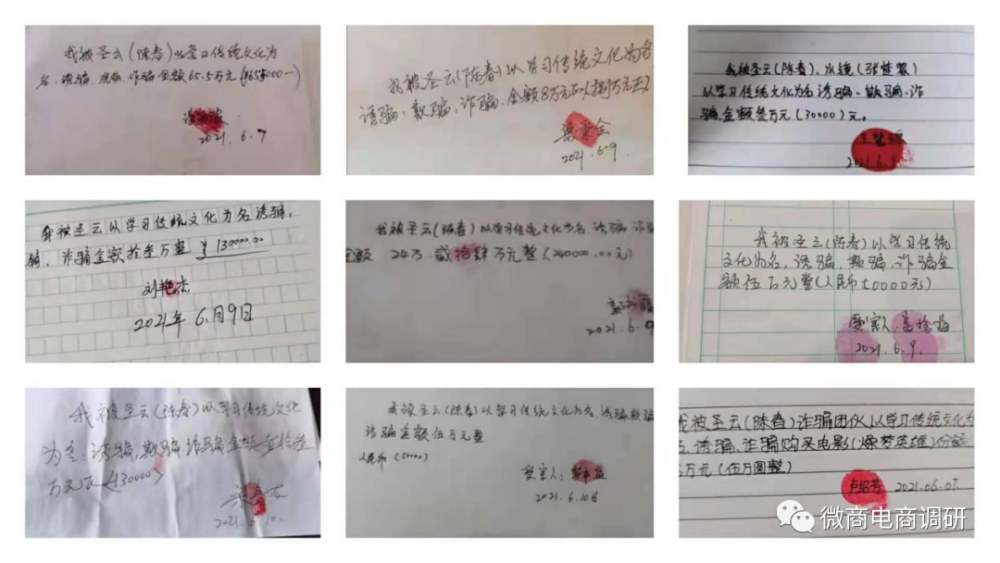 我被圣云(陈春)以学习传统文化为
名、诱骗、欺骗、诈骗金额65.5万元(655000一)
2021.6.9
我被圣云(陈春)以学习传统文化为名
诱骗、欺骗、诈骗、金额8万元正(捌万元正)
2021.6.9
我被圣云(陈春)、水镜(张
以学习传统文化为名诱骗、欺骗、诈
骗金额叁万元(30000)元。
2021.6.
我被圣云以学习传统文化为名诱骗,
骗,诈骗金额拾叁万整 ¥130000.00
刘艳杰
2021年6月9日
我被圣云(陈春)以学习传统文化为名 诱骗 诈
金额 24万.贰拾肆万元整(240000.00元)
2021.6.9
我被圣云(陈春)以学习传统
文化为名、诱骗、欺骗、诈骗金
额伍万元整(人民币50000元)
受害人:
2021.6.9.
我被圣云(陈春)以学习传统文化
为名:诱骗,欺骗.诈骗金额壹拾叁
万元正(130000)
2021.6.10.
我被圣云(陈春)以学习传统文化为名,诱骗欺骗
诈骗金额伍万元整
人民币(50000)
受害人:
2021.6.10日
我被圣云(陈春)诈骗团伙以学习传统文化为
名、诱骗、诈骗购买电影(聚梦英雄)份额
伍万元(伍万圆整)
卢绍芳 2021.06.07.
微商电商调研